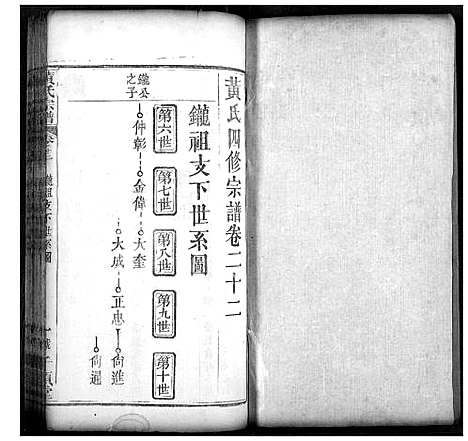 黃氏四修宗譜卷二十二
鑨祖支下世系圖
第六世
第七世
第八世
第九世
第十世
公
之子
仲彰
金偉
大奎
大成
正忠
尚進
尚選
氏宗譜
祖支下世系圖